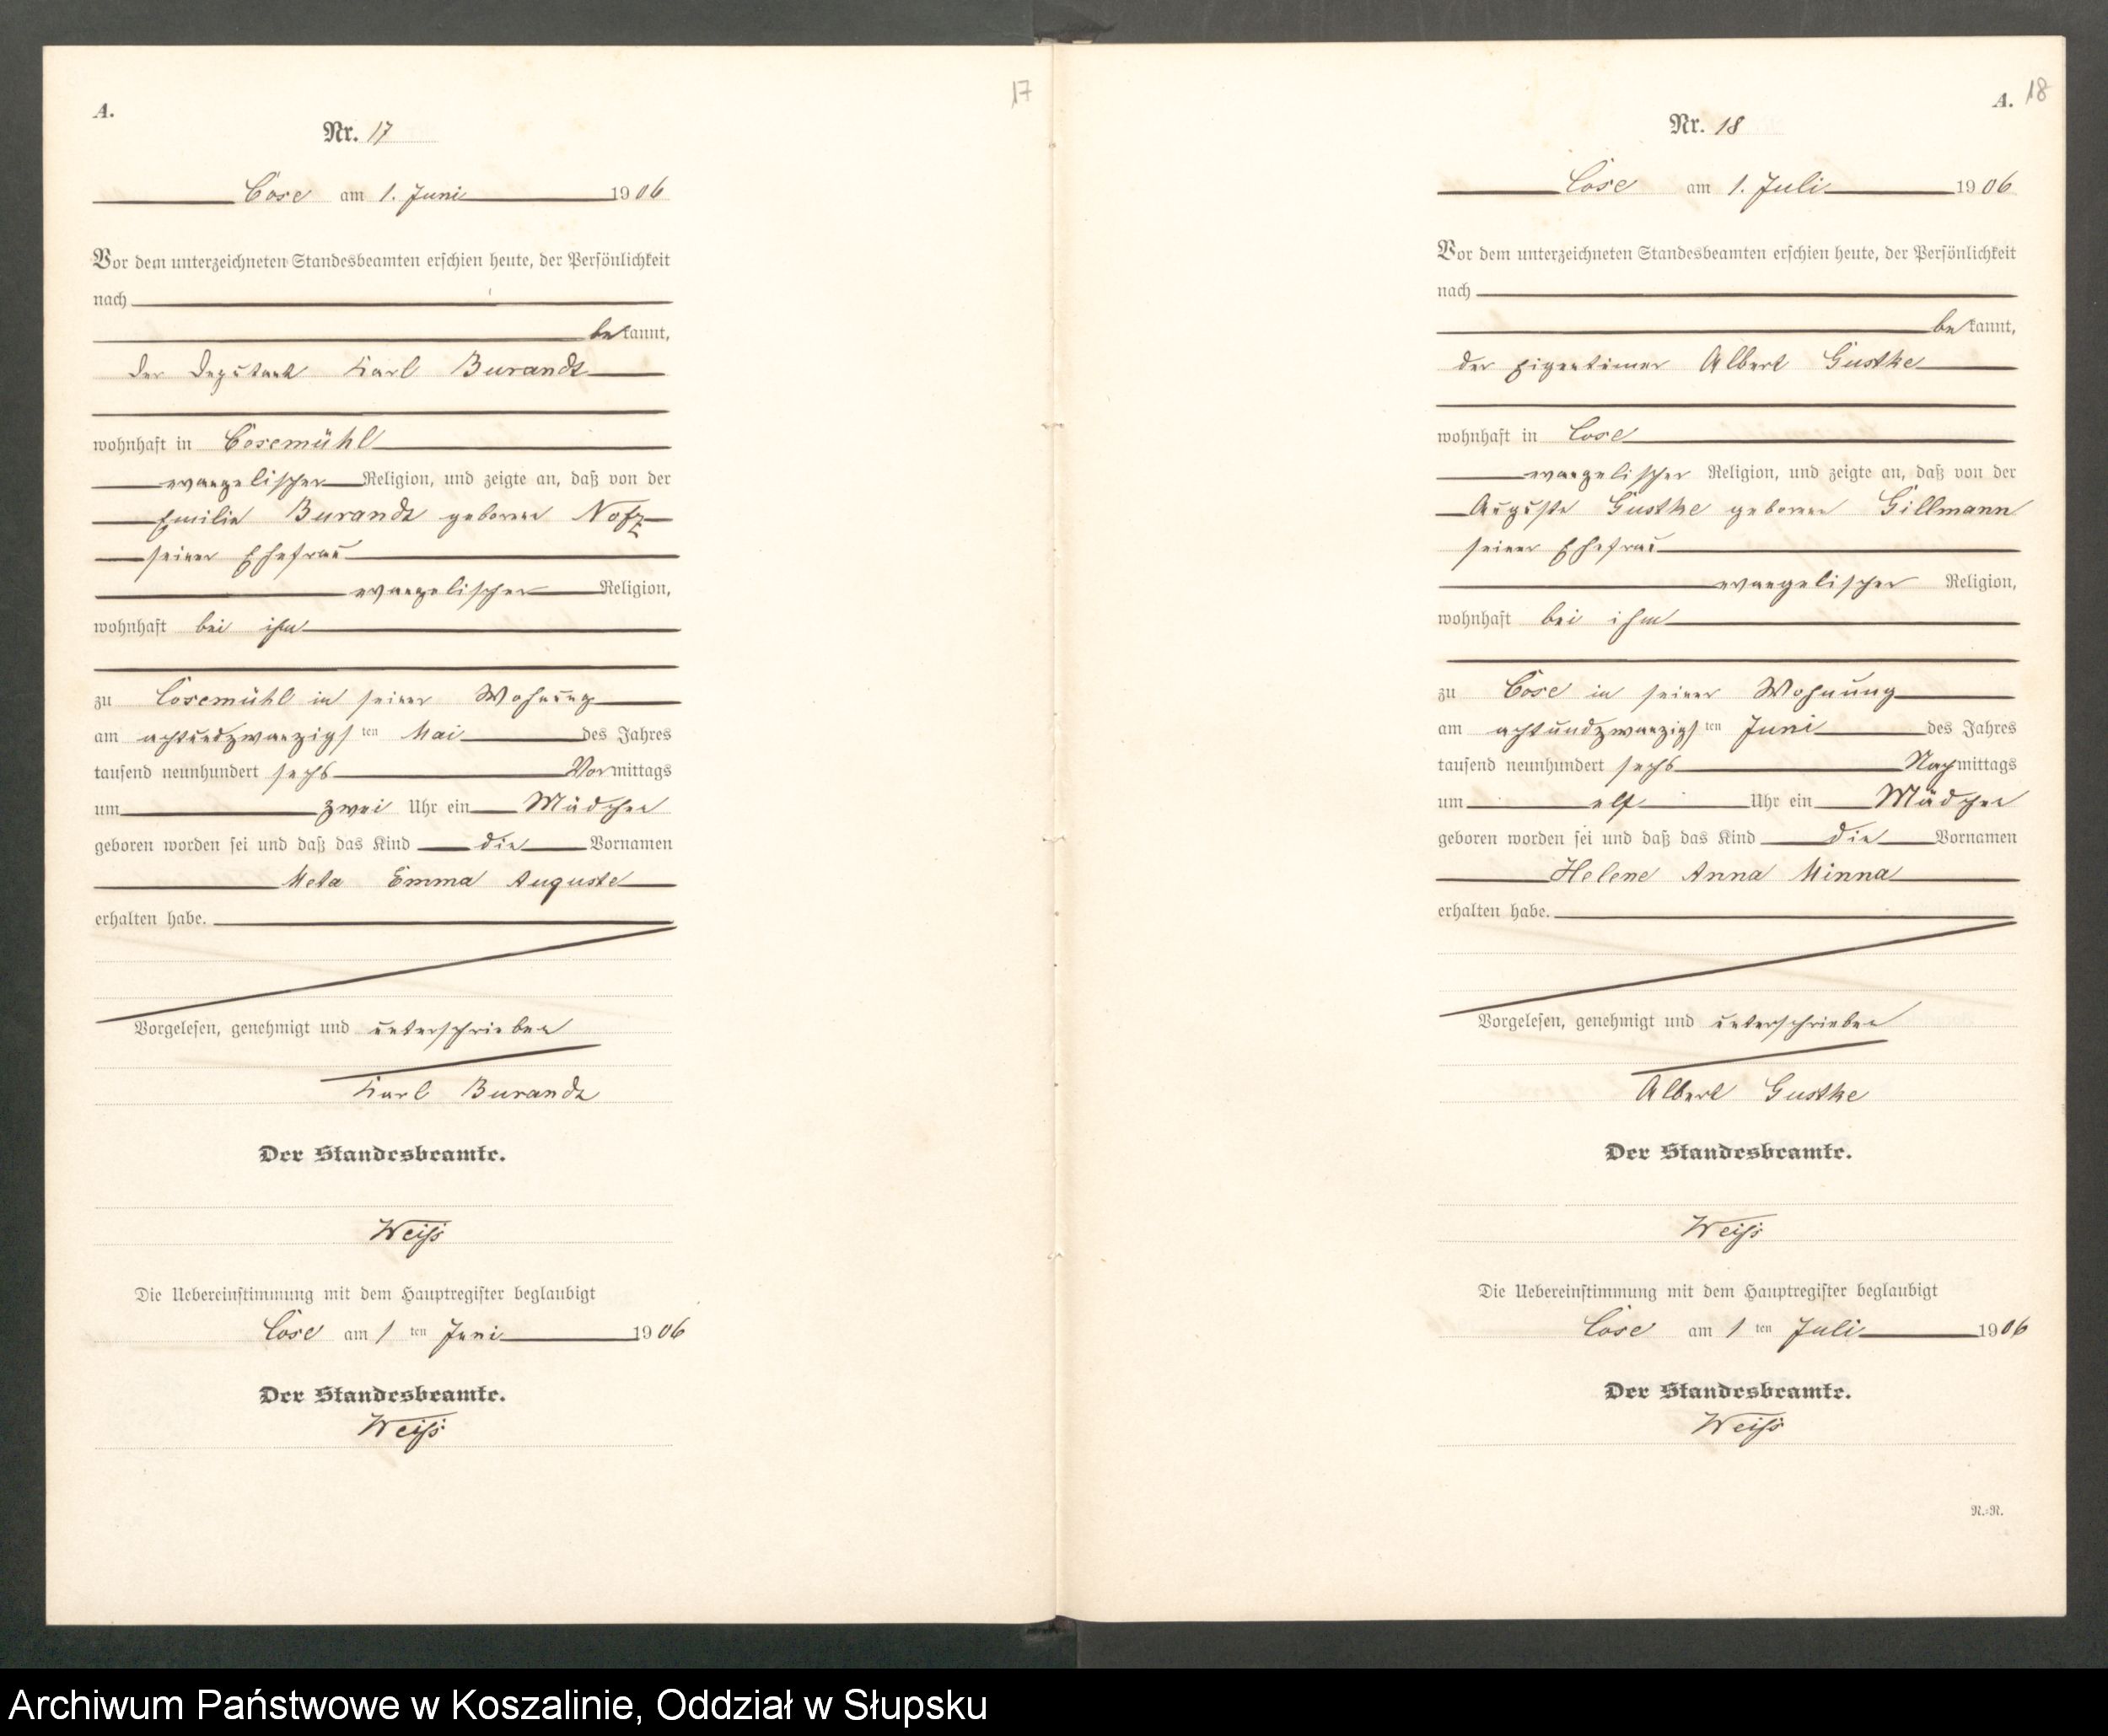 17
A.
Nr. 17
Cose am 1. Juni 1906
Vor dem unterzeichneten Standesbeamten erschien heute, der Persönlichkeit
nach
bekannt,
der Deputant Karl Burandt
wohnhaft in Cosemühl
evangelischer Religion, und zeigte an, daß von der
Emilie Burandt geborene Notz
seiner Ehefrau
evangelischer Religion,
wohnhaft bei ihm
zu Cosemühl in seiner Wohnung
am achtundzwanzigsten Mai des Jahres
tausend neunhundert sechs Vormittags
um zwei Uhr ein Mädchen
geboren worden sei und daß das Kind die Vornamen
Meta Emma Auguste
erhalten habe.
Vorgelesen, genehmigt und unterschrieben
Karl Burandt
Der Standesbeamte.
Weiß
Die Uebereinstimmung mit dem Hauptregister beglaubigt
Cose am 1ten Juni 1906
Der Standesbeamte.
Weiß
A. 18
Nr. 18
Cose am 1. Juli 1906
Vor dem unterzeichneten Standesbeamten erschien heute, der Persönlichkeit
nach
bekannt,
der Eigentümer Albert Gustke
wohnhaft in Cose
evangelischer Religion, und zeigte an, daß von der
Auguste Gustke geborene Gillmann
seiner Ehefrau
evangelischer Religion,
wohnhaft bei ihm
zu Cose in seiner Wohnung
am achtundzwanzigsten Juni des Jahres
tausend neunhundert sechs Nachmittags
um elf Uhr ein Mädchen
geboren worden sei und daß das Kind die Vornamen
Helene Anna Minna
erhalten habe.
Vorgelesen, genehmigt und unterschrieben
Albert Gustke
Der Standesbeamte.
Weiß
Die Uebereinstimmung mit dem Hauptregister beglaubigt
Cose am 1ten Juli 1906
Der Standesbeamte.
Weiß
N.:N.
Archiwum Państwowe w Koszalinie, Oddział w Słupsku